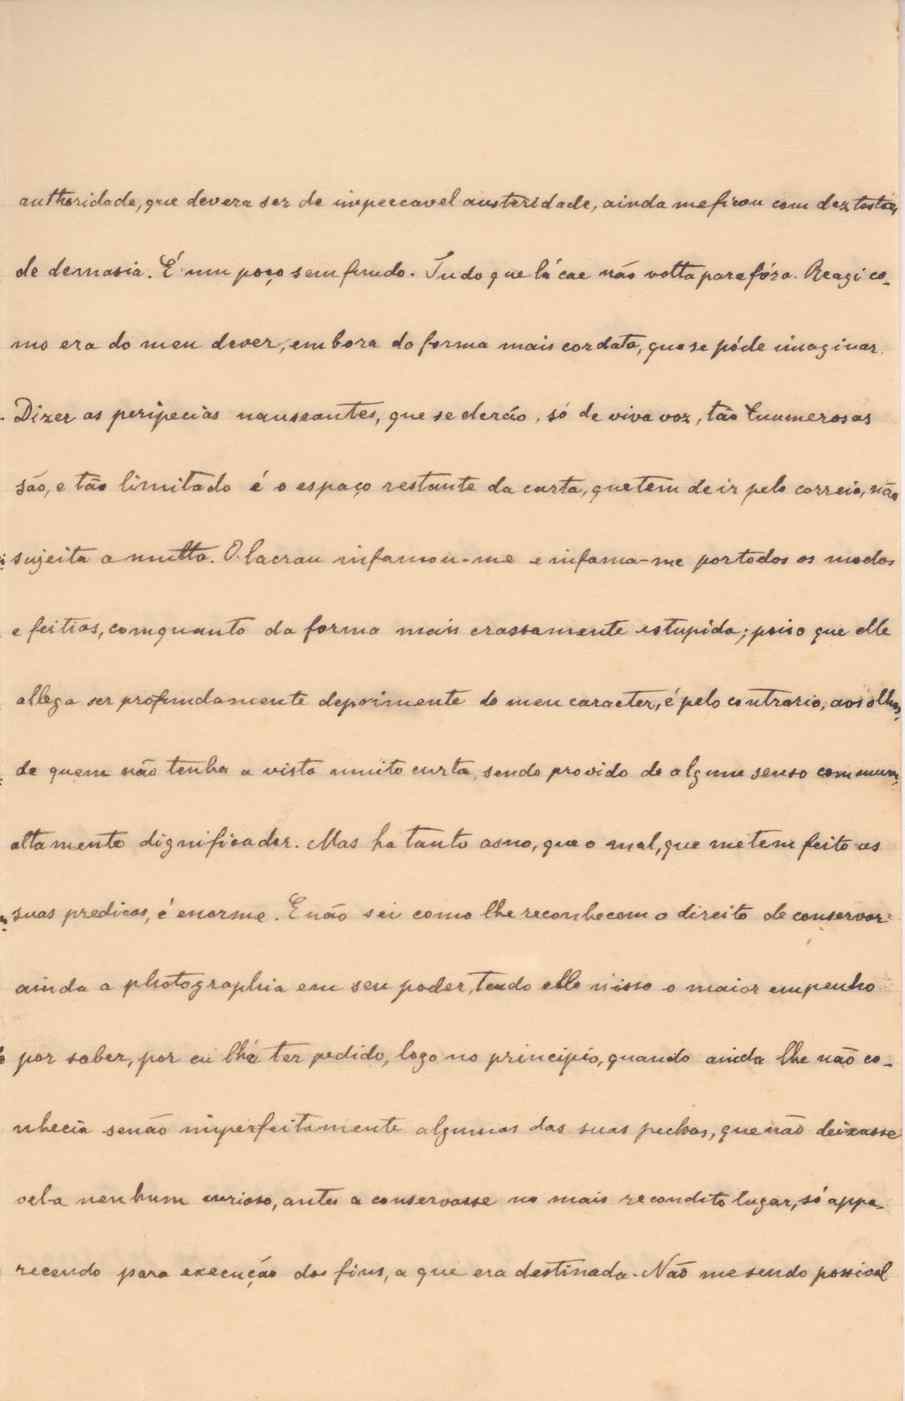 authoridade, que devera ser de impeccavel austeridade, ainda me firou com dez tostões
de demasia. É um poço sem fundo. Tudo que lá cae não volta para fóra. Reagi co-
mo era do meu dever, embora da forma mais cordata, que se póde imaginar.
Dizer as peripecias nauseantes, que se derão, só de viva voz, tão innumerosas
são, e tão limitado é o espaço restante da carta, que tem de ir pelo correio, não
sujeita a multa. O lacrau infamou-me e infama-me por todos os modos
e feitios, comquanto da forma mais crassamente estupida; poiso que elle
allega ser profundamente deprimente do meu caracter, é pelo contrario, aos olhos,
de quem não tenha a vista muito curta, sendo provido de algum senso commum,
altamente dignificador. Mas ha tanto asno, que o mal, que me tem feito as
suas predicas, é enorme. E não sei como lhe reconhecem o direito de conservar
ainda a photographia em seu poder, tendo elle nisso o maior empenho
por saber, por eu lha ter pedido, logo no principio, quando ainda lhe não co-
nhecia senão imperfeitamente algumas das suas pechas, que não deixasse
vel-a nenhum curioso, antes a conservasse no mais recondito lugar, só appa-
recendo para execução dos fins, a que era destinada. Não me sendo possivel